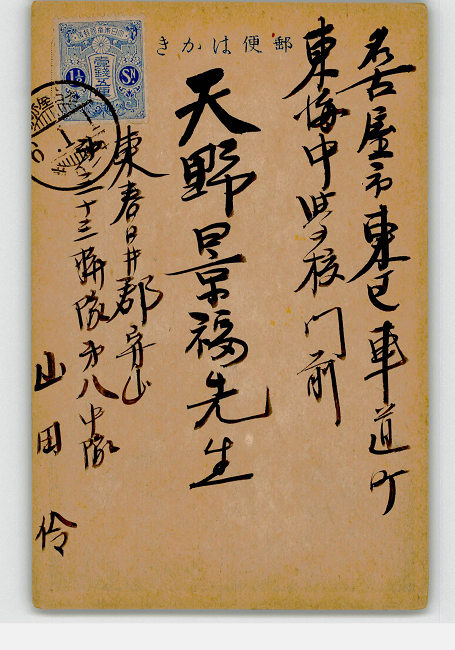 郵便はかき
名古屋市東区車道町
東海中学校門前
天野景福先生
東春日井郡守山
歩三十三聯隊第八中隊
山田
大日本帝國郵便
壹錢五厘
1½ Sn